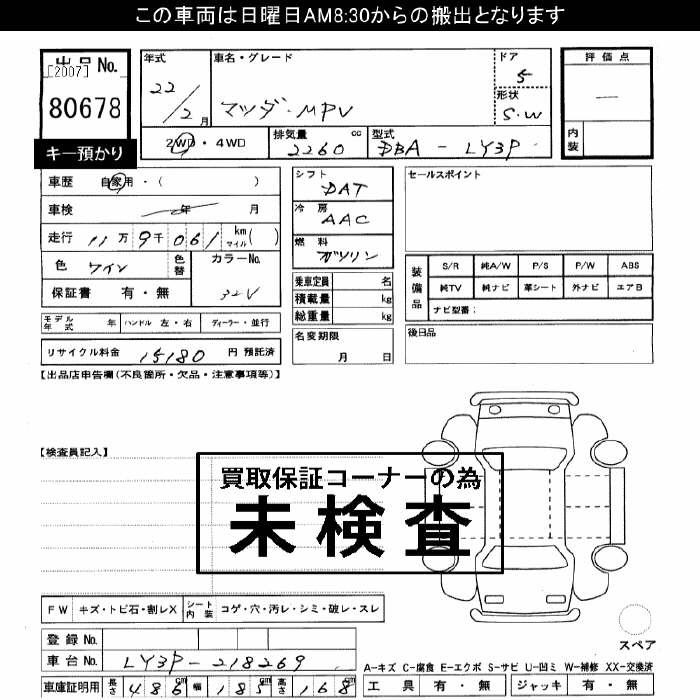 この車両は日曜日AM8:30からの搬出となります
出品No.
[2007]
80678
キー預かり
年式
22/2月
車名・グレード
マツダ・MPV
ドア
5
形状
S.W
評価点
—
内装
2WD・4WD
排気量 cc
2260
型式
DBA-LY3P
車歴 自家用・( )
車検 年 月
走行 11万9千061 km マイル ( )
色 ワイン
色替
カラーNo.
32V
保証書 有・無
シフト
DAT
冷房
AAC
燃料
ガソリン
乗車定員 名
積載量 kg
総重量 kg
名変期限
月 日
セールスポイント
装備品
S/R 純A/W P/S P/W ABS
純TV 純ナビ 革シート 外ナビ エアB
ナビ型番:
後日品
モデル年式 年 ハンドル 左・右 ディーラー・並行
リサイクル料金 15180 円 預託済
【出品店申告欄(不良箇所・欠品・注意事項等)】
【検査員記入】
買取保証コーナーの為
未検査
FW キズ・トビ石・割レX シート内装 コゲ・穴・汚レ・シミ・破レ・スレ
登録No.
車台No. LY3P-218269
車庫証明用 長さ 486cm 幅 185cm 高さ 168cm
スペア
A-キズ C-腐食 E-エクボ S-サビ U-凹ミ W-補修 XX-交換済
工具 有・無 ジャッキ 有・無